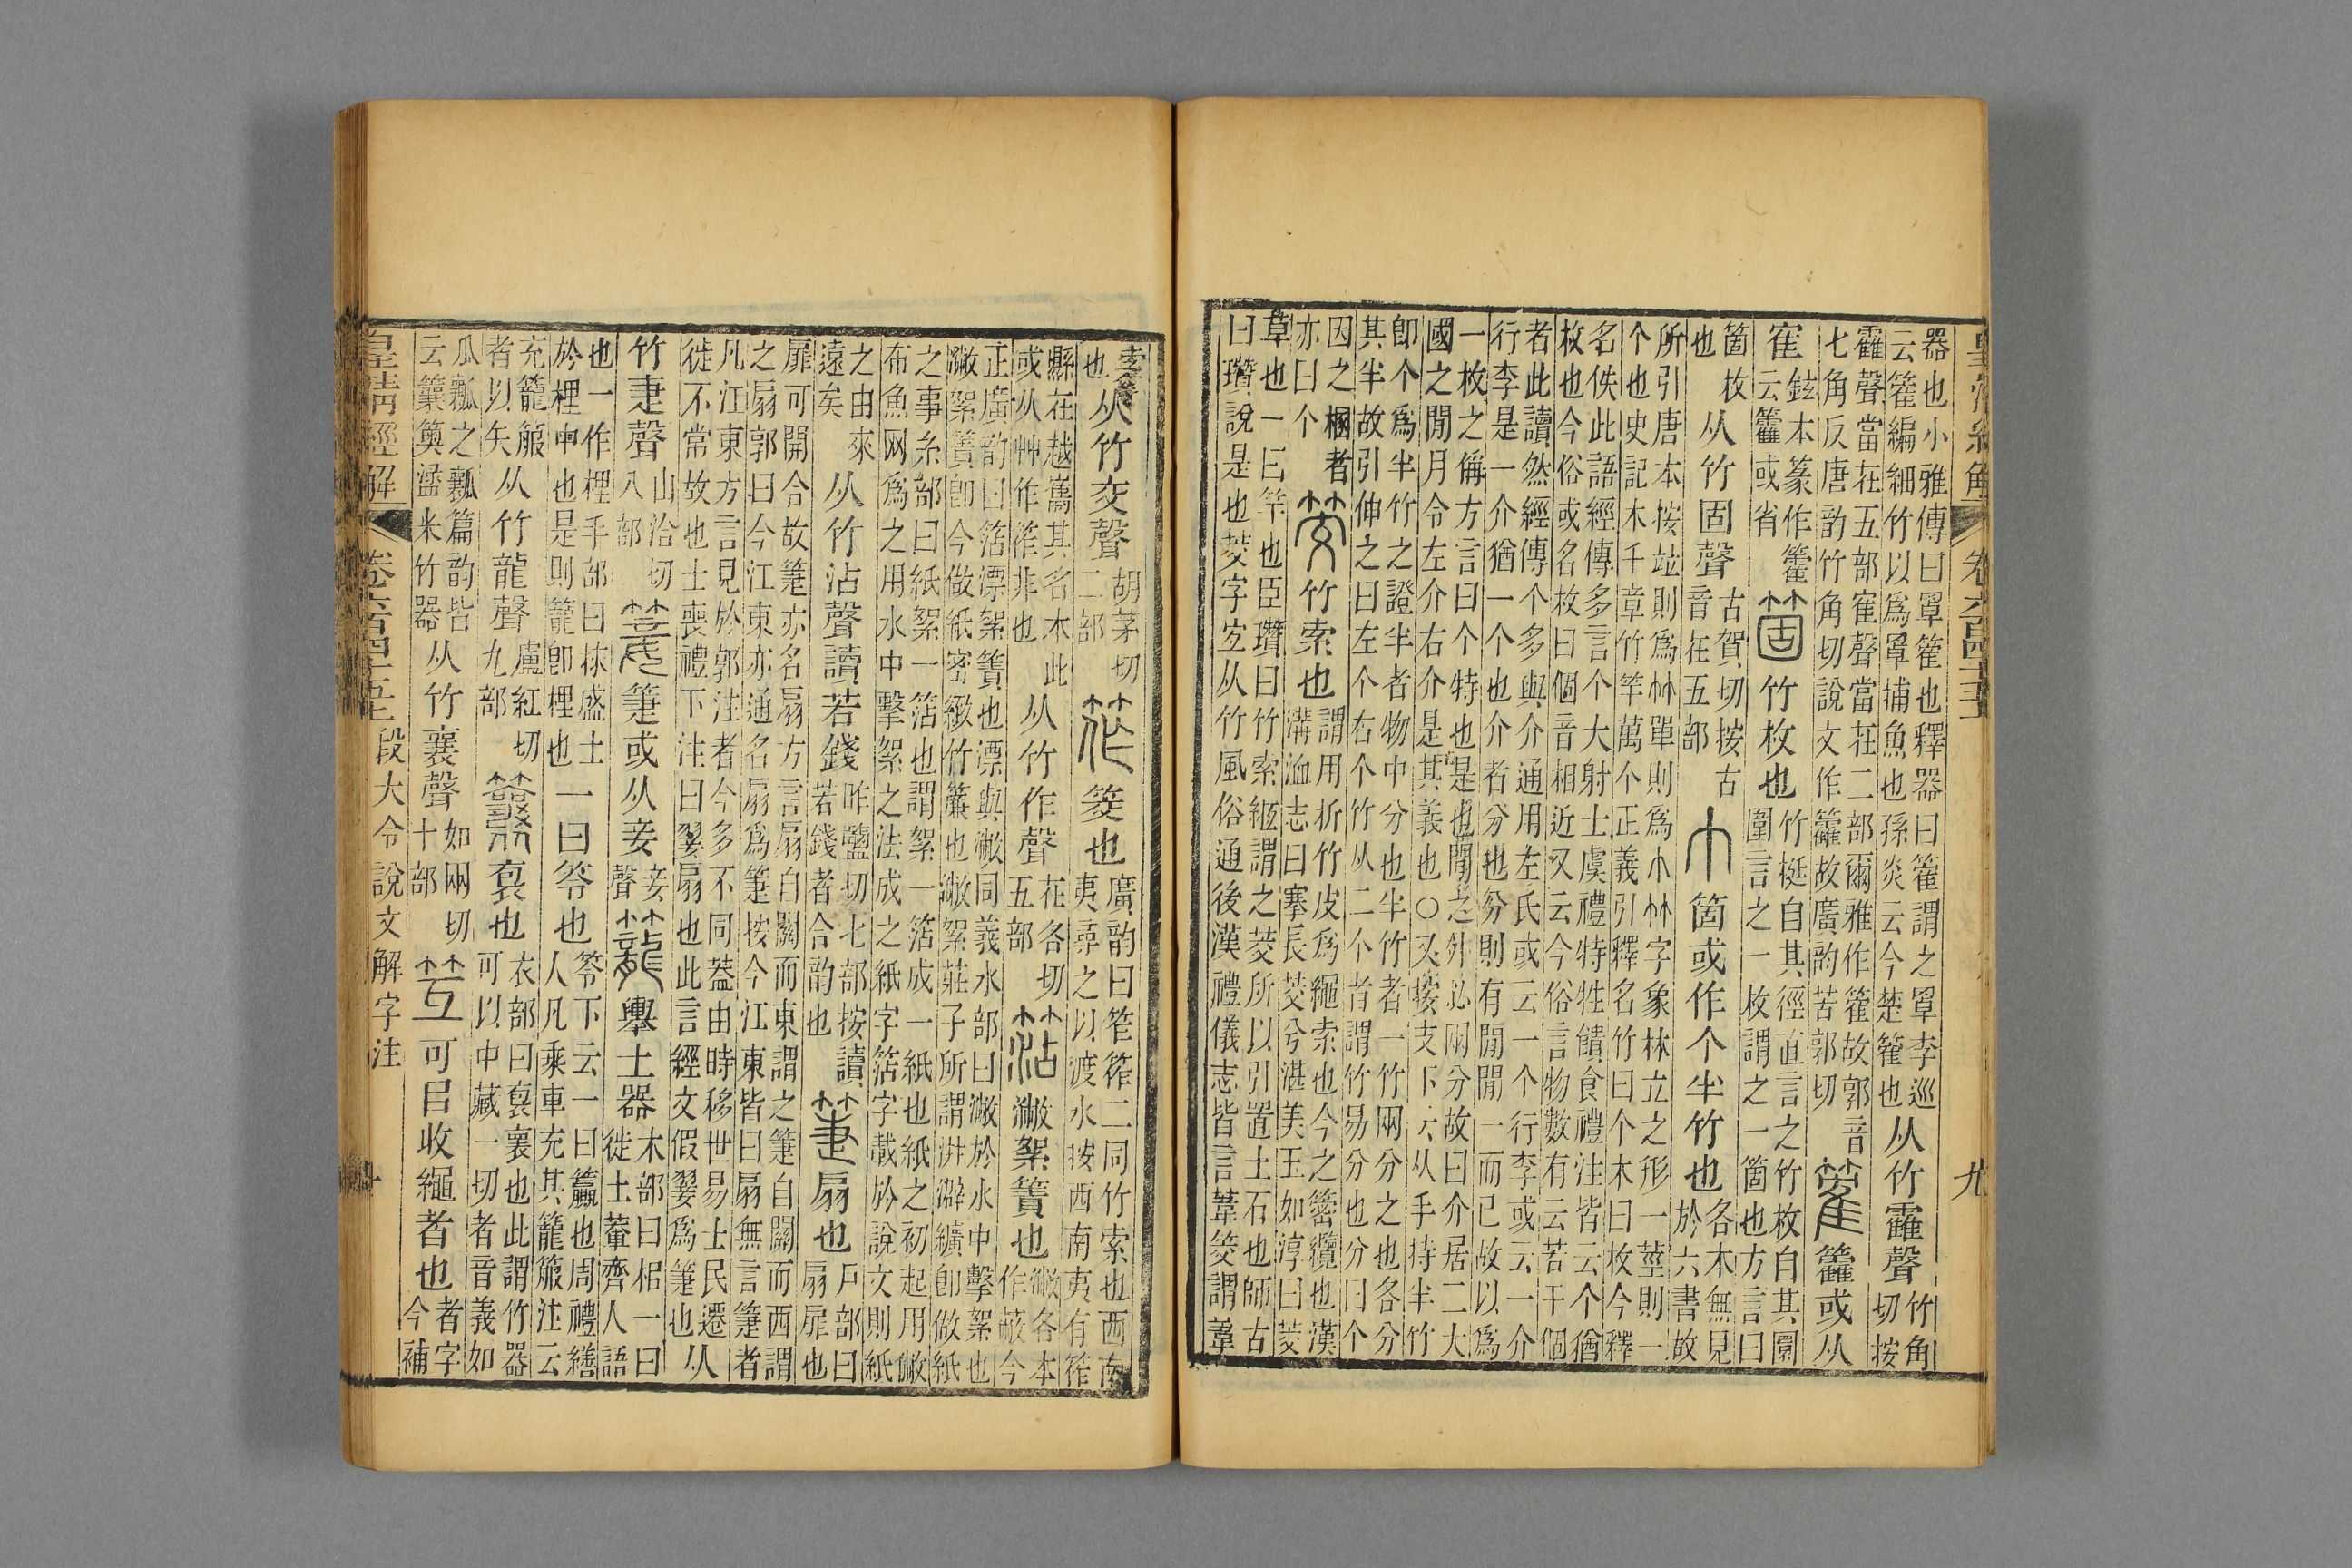 皇清經解 卷六百四十五 九
器也小雅傳曰罩籗也釋器曰籗謂之罩李巡云籗編細竹以爲罩捕魚也孫炎云今楚籗也从竹靃聲竹角切按
靃聲當在五部寉聲當在二部爾雅作籗故郭音七角反唐韵竹角切說文作籱故廣韵苦郭切篧籱或从
寉鉉本篆作籗云籱或省箇竹枚也竹梃自其徑直言之竹枚自其圜圍言之一枚謂之一箇也方言曰
箇枚也从竹固聲古賀切按古音在五部个箇或作个半竹也各本無見於六書故
所引唐本按竝則爲𥫗單則爲个𥫗字象林立之形一莖則一个也史記木千章竹竿萬个正義引釋名竹曰个木曰枚今釋
名佚此語經傳多言个大射士虞禮特牲饋食禮注皆云个猶枚也今俗或名枚曰個音相近又云今俗言物數有云若干個
者此讀然經傳个多與介通用左氏或云一个行李或云一介行李是一介猶一个也介者分也分則有閒閒一而已故以爲
一枚之偁方言曰个特也是也閒之外必兩分故曰介居二大國之閒月令左介右介是其義也○又按支下云从手持半竹
卽个爲半竹之證半者物中分也半竹者一竹兩分之也各分其半故引伸之曰左个右个竹从二个者謂竹易分也分曰个
因之梱者亦曰个筊竹索也謂用析竹皮爲繩索也今之䉭纜也漢溝洫志曰搴長茭兮湛美玉如淳曰茭
草也一曰竿也臣瓚曰竹索絙謂之茭所以引置土石也師古曰瓚說是也茭字宐从竹風俗通後漢禮儀志皆言葦筊謂葦
索也从竹交聲胡茅切二部筰筊也廣韵曰筰二同竹索也西南夷尋之以渡水按西南夷有筰
縣在越嶲其名本此或从艸作莋非也从竹作聲在各切五部𥬰潎絮簀也潎各本作蔽今
正廣韵曰𥬰漂絮簀也漂與潎同義水部曰潎於水中擊絮也潎絮簀卽今做紙密緻竹簾也潎絮莊子所謂洴澼纊卽做紙
之事糸部曰紙絮一𥬰也謂絮一𥬰成一紙也紙之初起用敝布魚网爲之用水中擊絮之法成之紙字𥬰字載於說文則紙
之由來遠矣从竹沾聲讀若錢昨鹽切七部按讀若錢者合韵也箑扇也戶部曰扇扉也
扉可開合故箑亦名扇方言扇自關而東謂之箑自關而西謂之扇郭曰今江東亦通名扇爲箑按今江東皆曰扇無言箑者
凡江東方言見於郭注者今多不同蓋由時移世易士民遷徙不常故也士喪禮下注曰翣扇也此言經文假翣爲箑也从
竹疌聲山洽切八部𥷚箑或从妾妾聲籠擧土器也木部曰梠一曰徙土輂齊人語
也一作梩手部曰捄盛土於梩中也是則籠卽梩也一曰笭也笭下云一曰籯也周禮繕人凡乘車充其籠箙注云
充籠箙者以矢从竹龍聲盧紅切九部䉴褱也衣部曰褱褱也此謂竹器可以中藏一切者音義如
瓜瓤之瓤篇韵皆云䉴籅盪米竹器从竹襄聲如兩切十部𥬲可㠯收繩者也者字今補
皇清經解 卷六百四十五 段大令說文解字注 十